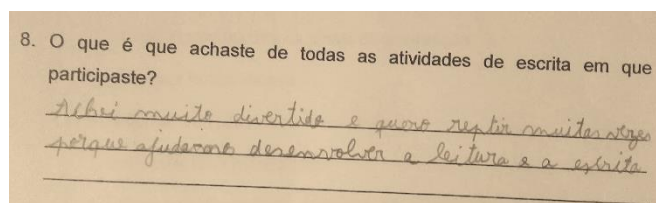 8. O que é que achaste de todas as atividades de escrita em que
participaste?
Achei muito divertido e quero reptir muitas vezes
porque ajudamos desenvolver a leitura e a escrita